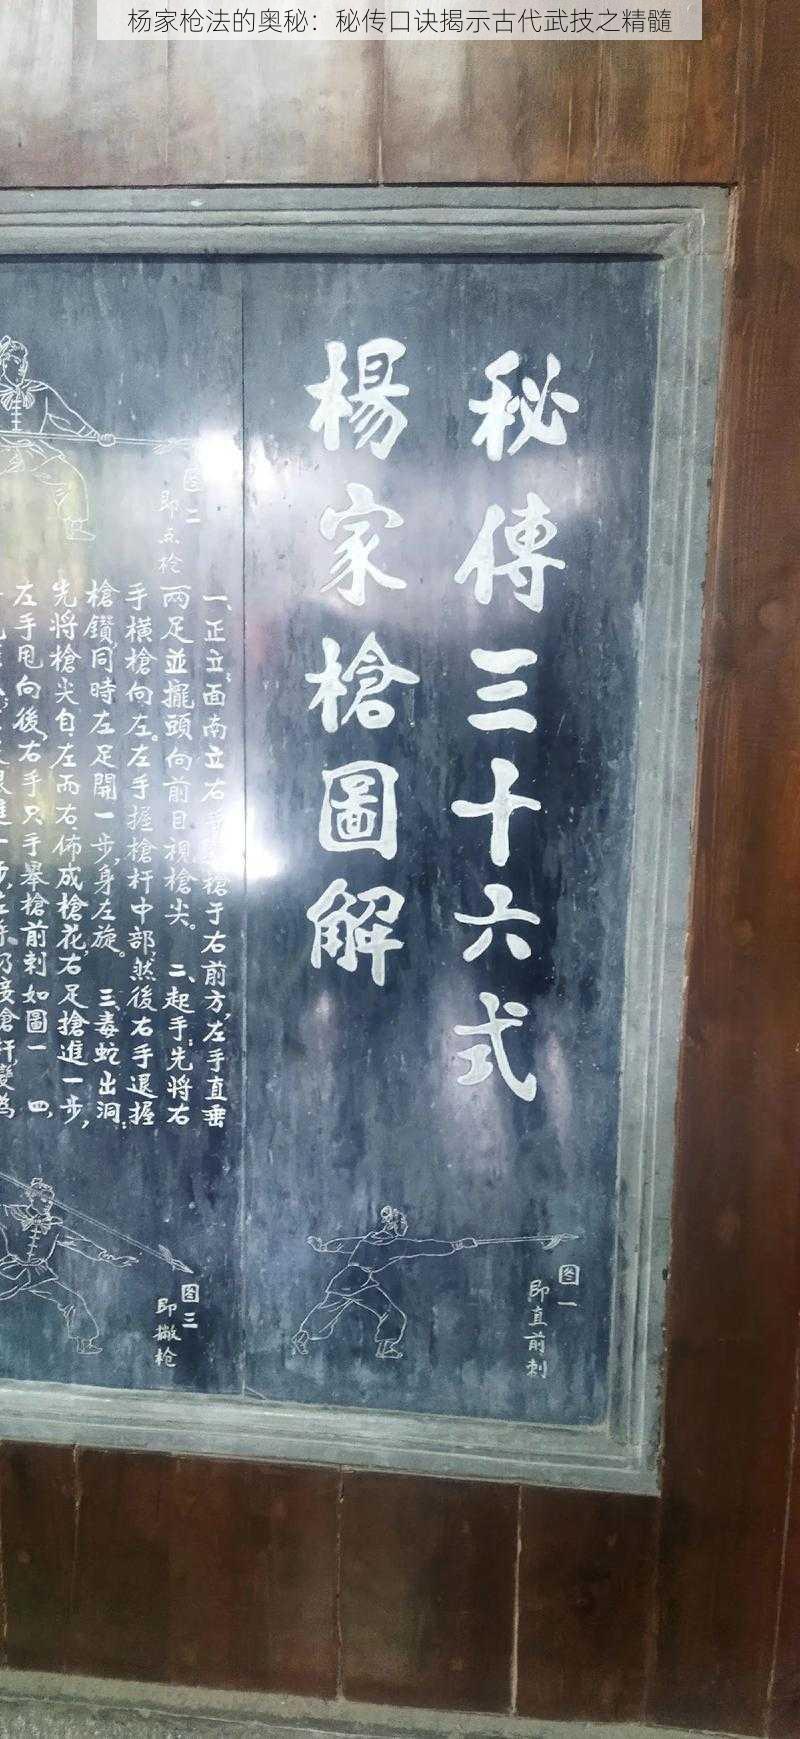 杨家枪法的奥秘：秘传口诀揭示古代武技之精髓
秘傳三十六式
楊家槍圖解
图一
即直前刺
一、正立，面南立右手 槍于右前方，左手直垂
两足並擺頭向前目視槍尖。 二、起手：先将右
手横槍向左。左手握槍杆中部，然後右手退握
槍鑽，同時左足開一步，身左旋。 三、毒蛇出洞：
先将槍尖自左而右佈成槍花，右足搶進一步，
左手甩向後，右手只手舉槍前刺如圖一 四、
图二
即点枪
图三
即撇枪